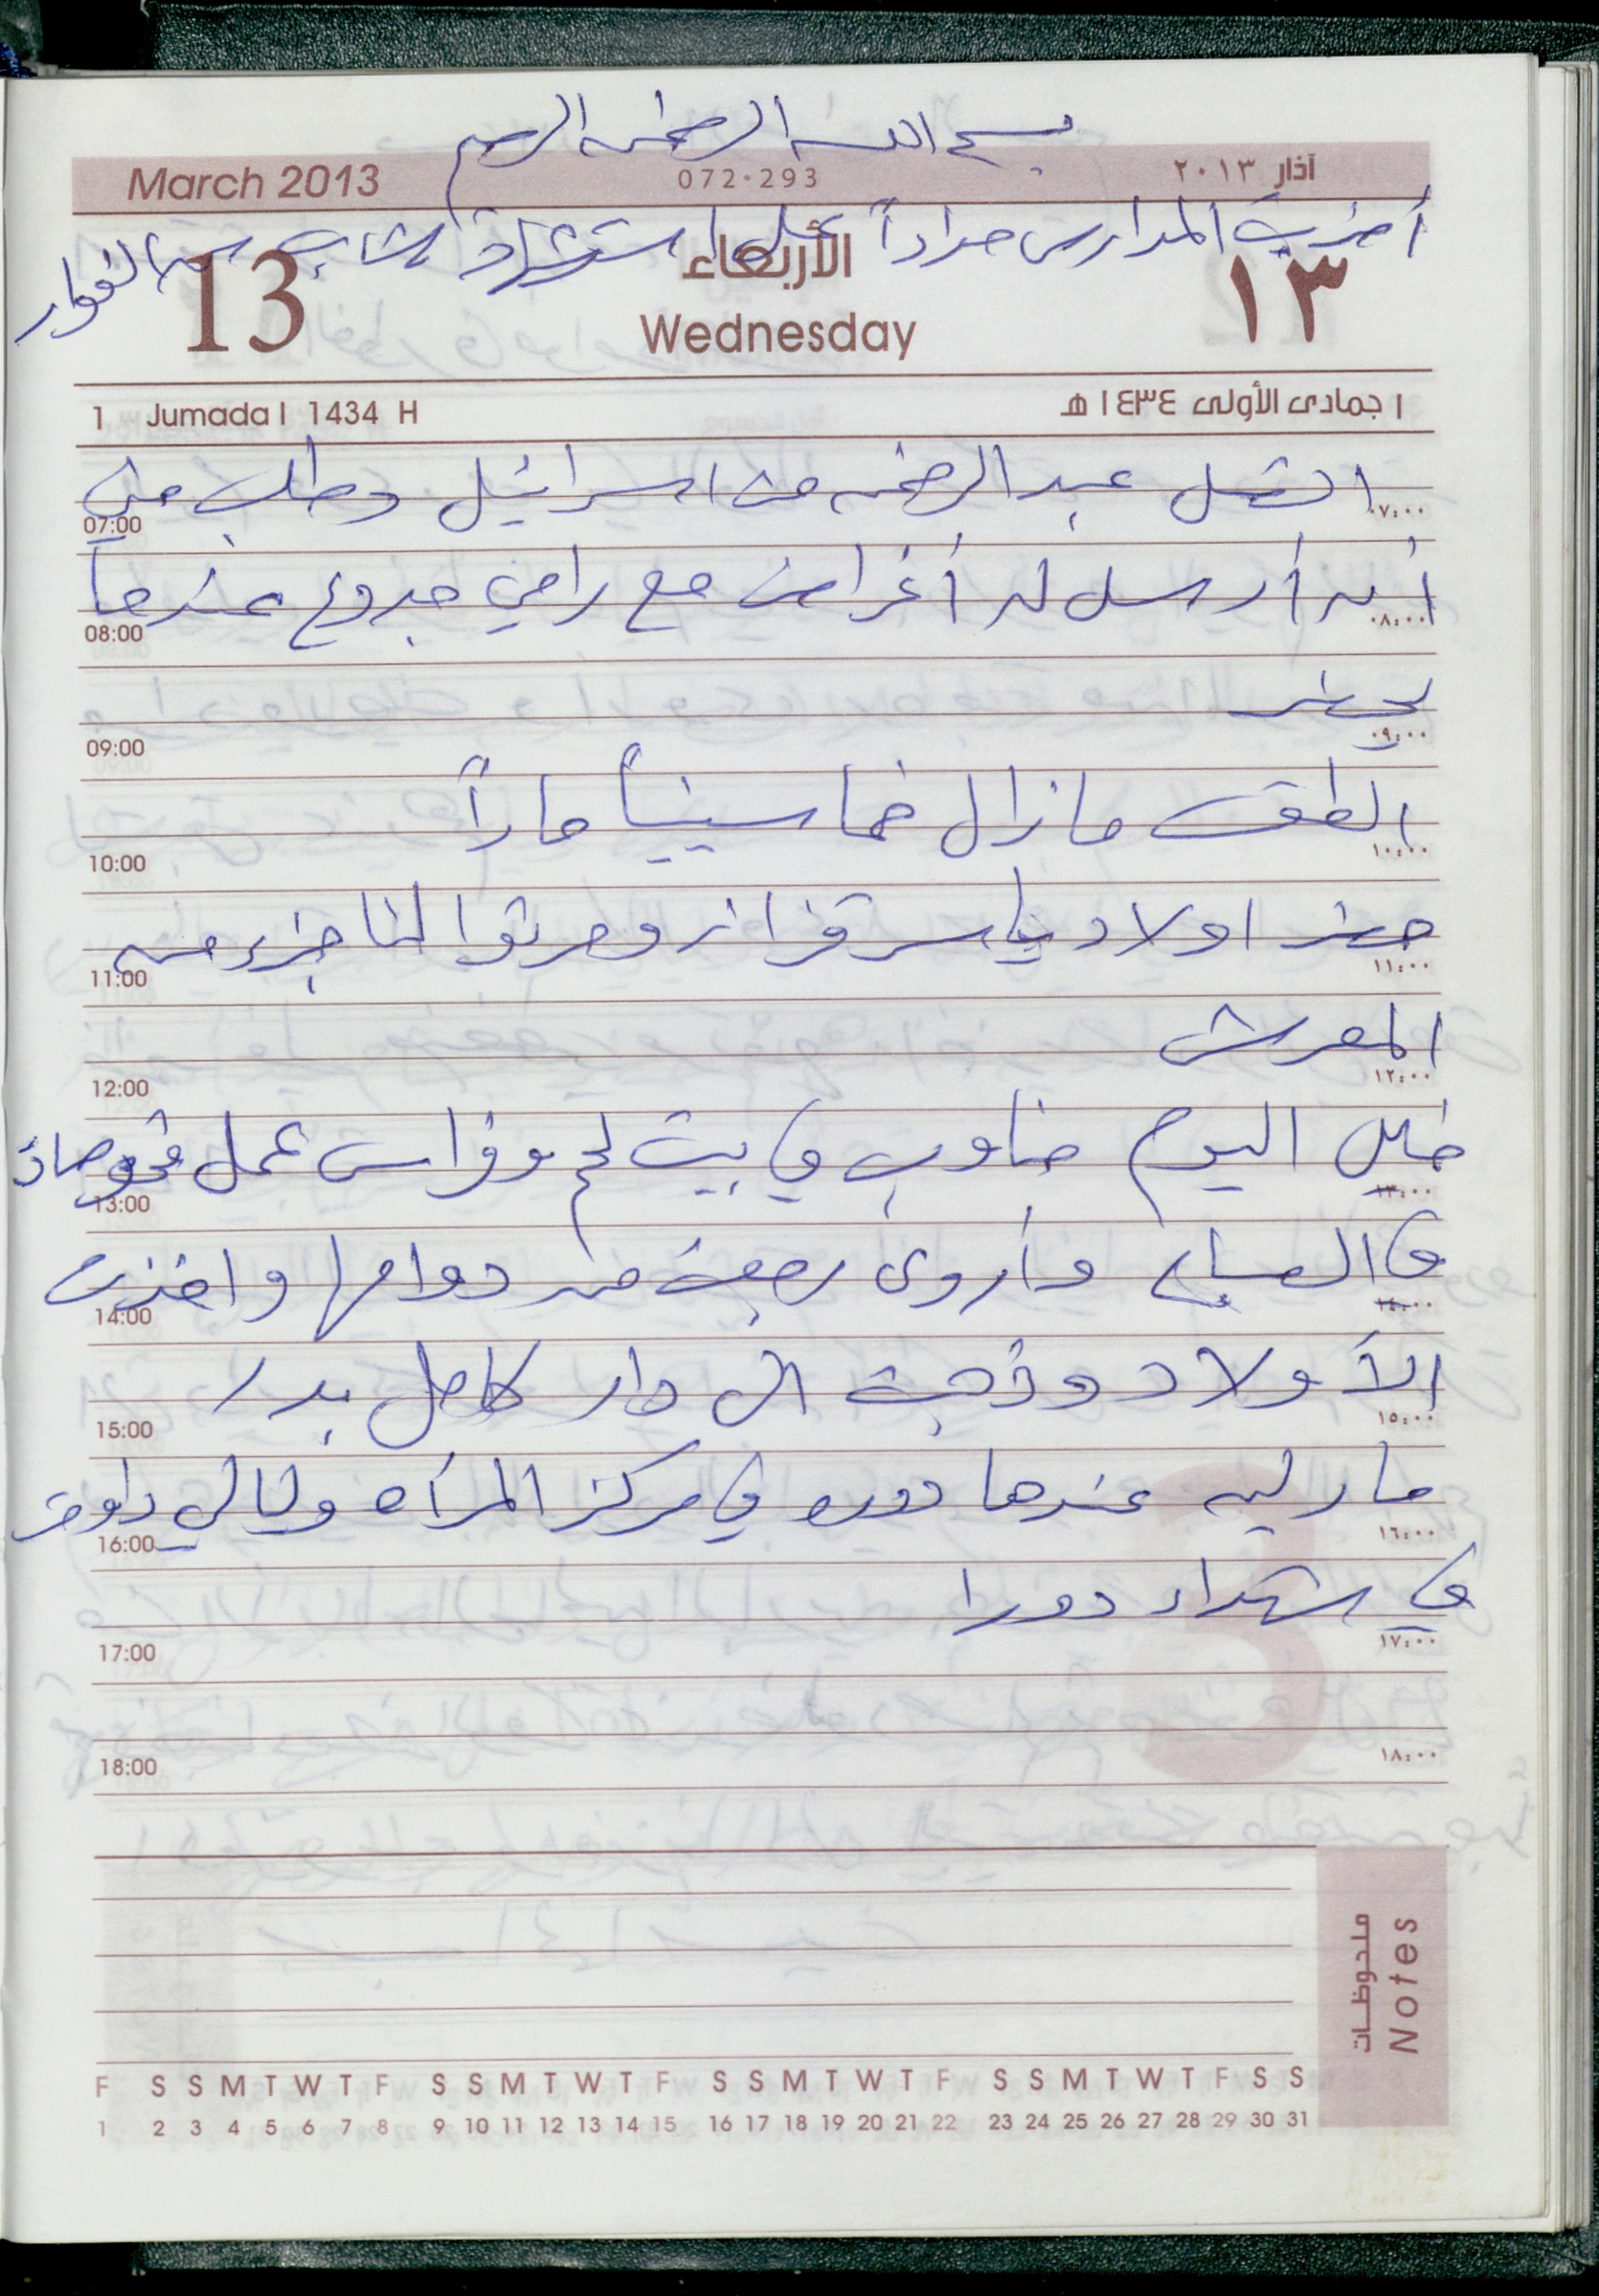 بسم الله الرحمن الرحيم
March 2013 072-293 آذار ٢٠١٣
أضربت المدارس حداداً على استشهاد شاب من الفوار
13 الأربعاء ١٣
Wednesday
1 Jumada I 1434 H ١ جمادى الأولى ١٤٣٤ هـ
اتصل عبد الرحمن من اسرائيل وطلب مني
07:00 ٠٧:٠٠
أن أرسل له أغراض مع رامي جدوع عندما
08:00 ٠٨:٠٠
يحضر
09:00 ٠٩:٠٠
الطقس مازال خماسينياً حاراً
10:00 ١٠:٠٠
حضر اولاد ياسر قزاز وحرثوا لنا جزء من
11:00 ١١:٠٠
المعرش
12:00 ١٢:٠٠
خليل اليوم مناوب في بيت لحم وفراس عمل فحوصات
13:00 ١٣:٠٠
في الصباح وأروى رجعت من دوامها واخذت
14:00 ١٤:٠٠
الأولاد وذهبت الى دار كامل بدر
15:00 ١٥:٠٠
مارليه عندها دوره في مركز المرأه وليالي داومت
16:00 ١٦:٠٠
في شهداء دورا
17:00 ١٧:٠٠
18:00 ١٨:٠٠
ملحوظات
Notes
F S S M T W T F S S M T W T F S S M T W T F S S M T W T F S S
1 2 3 4 5 6 7 8 9 10 11 12 13 14 15 16 17 18 19 20 21 22 23 24 25 26 27 28 29 30 31